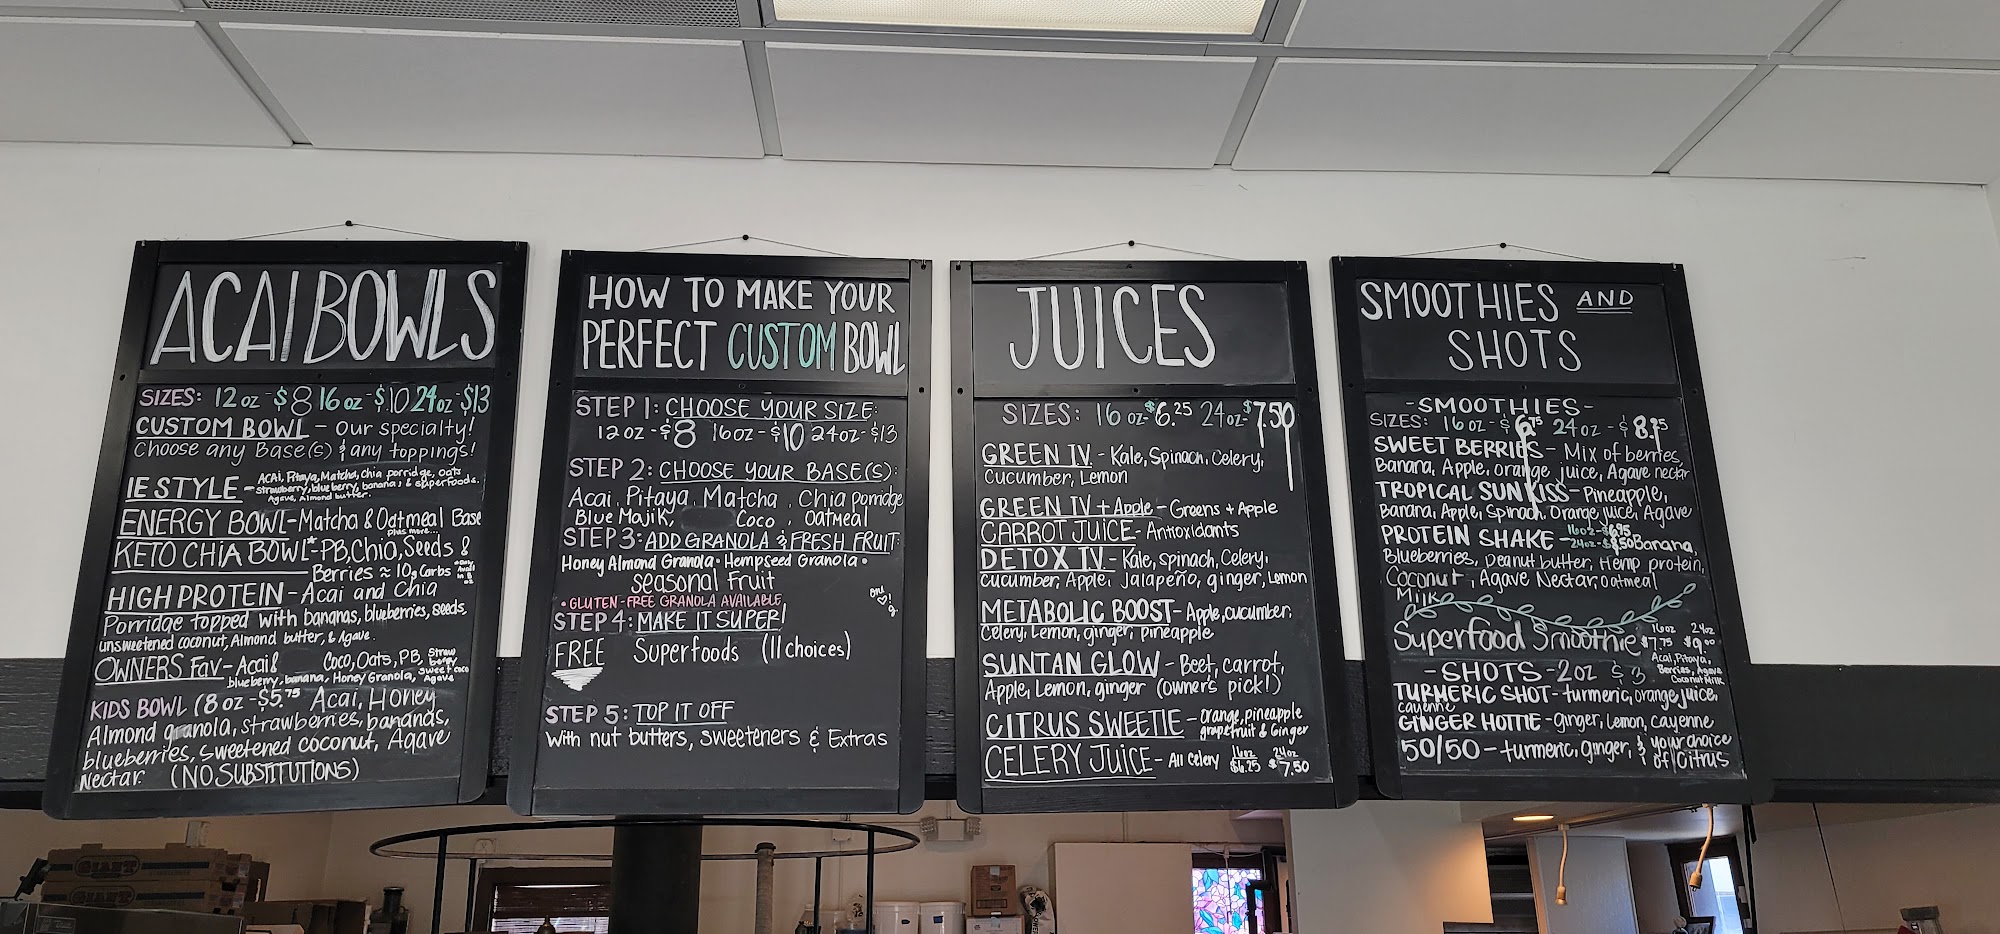 ACAI BOWLS
SIZES: 12 oz - $8 16 oz - $10 24 oz - $13
CUSTOM BOWL - our specialty!
Choose any Base(s) & any toppings!
IE STYLE - ACAI, Pitaya, Matcha, Chia porridge, oats
strawberry, blueberry, banana, & superfoods.
Agave, Almond butter.
ENERGY BOWL - Matcha & Oatmeal Base
plus more...
KETO CHIA BOWL* - PB, Chia, Seeds &
Berries ≈ 10g Carbs
HIGH PROTEIN - Acai and Chia
Porridge topped with bananas, blueberries, seeds,
unsweetened coconut, Almond butter, & Agave.
OWNERS FAV - Acai & Coco, Oats, PB, Strawberry
blueberry, banana, Honey Granola, Sweet coco
Agave
KIDS BOWL (8 oz - $5.75 Acai, Honey
Almond granola, strawberries, bananas,
blueberries, sweetened coconut, Agave
Nectar. (NO SUBSTITUTIONS)
HOW TO MAKE YOUR
PERFECT CUSTOM BOWL
STEP 1: CHOOSE YOUR SIZE:
12 oz - $8 16 oz - $10 24 oz - $13
STEP 2: CHOOSE YOUR BASE(S):
Acai, Pitaya, Matcha, Chia porridge
Blue Majik, Coco, Oatmeal
STEP 3: ADD GRANOLA & FRESH FRUIT:
Honey Almond Granola • Hempseed Granola •
Seasonal Fruit
• GLUTEN-FREE GRANOLA AVAILABLE
STEP 4: MAKE IT SUPER!
FREE Superfoods (11 choices)
STEP 5: TOP IT OFF
With nut butters, sweeteners & Extras
JUICES
SIZES: 16 oz - $6.25 24 oz - $7.50
GREEN IV - Kale, Spinach, Celery,
Cucumber, Lemon
GREEN IV + Apple - Greens + Apple
CARROT JUICE - Antioxidants
DETOX IV - Kale, spinach, Celery,
cucumber, Apple, Jalapeño, ginger, Lemon
METABOLIC BOOST - Apple, cucumber,
Celery, Lemon, ginger, pineapple
SUNTAN GLOW - Beet, carrot,
Apple, Lemon, ginger (owner's pick!)
CITRUS SWEETIE - Orange, pineapple
grapefruit & Ginger
CELERY JUICE - All Celery 16oz $6.25 24oz $7.50
SMOOTHIES AND
SHOTS
- SMOOTHIES -
SIZES: 16 oz - $6.75 24 oz -
SWEET BERRIES - Mix of berries,
Banana, Apple, orange juice, Agave nectar
TROPICAL SUN KISS - Pineapple,
Banana, Apple, Spinach, Orange juice, Agave
PROTEIN SHAKE - 16oz - $6.95
24oz - $8.50 Banana,
Blueberries, Peanut butter, Hemp protein,
Coconut, Agave Nectar, oatmeal
Milk
Superfood Smoothie 16oz $7.75 24oz $9.00
Acai, Pitaya,
Berries, Agave
Coconut Milk
- SHOTS - 2oz $3
TURMERIC SHOT - turmeric, orange juice,
cayenne
GINGER HOTTIE - ginger, Lemon, cayenne
50/50 - turmeric, ginger, & your choice
of Citrus
GIANT
GIANT